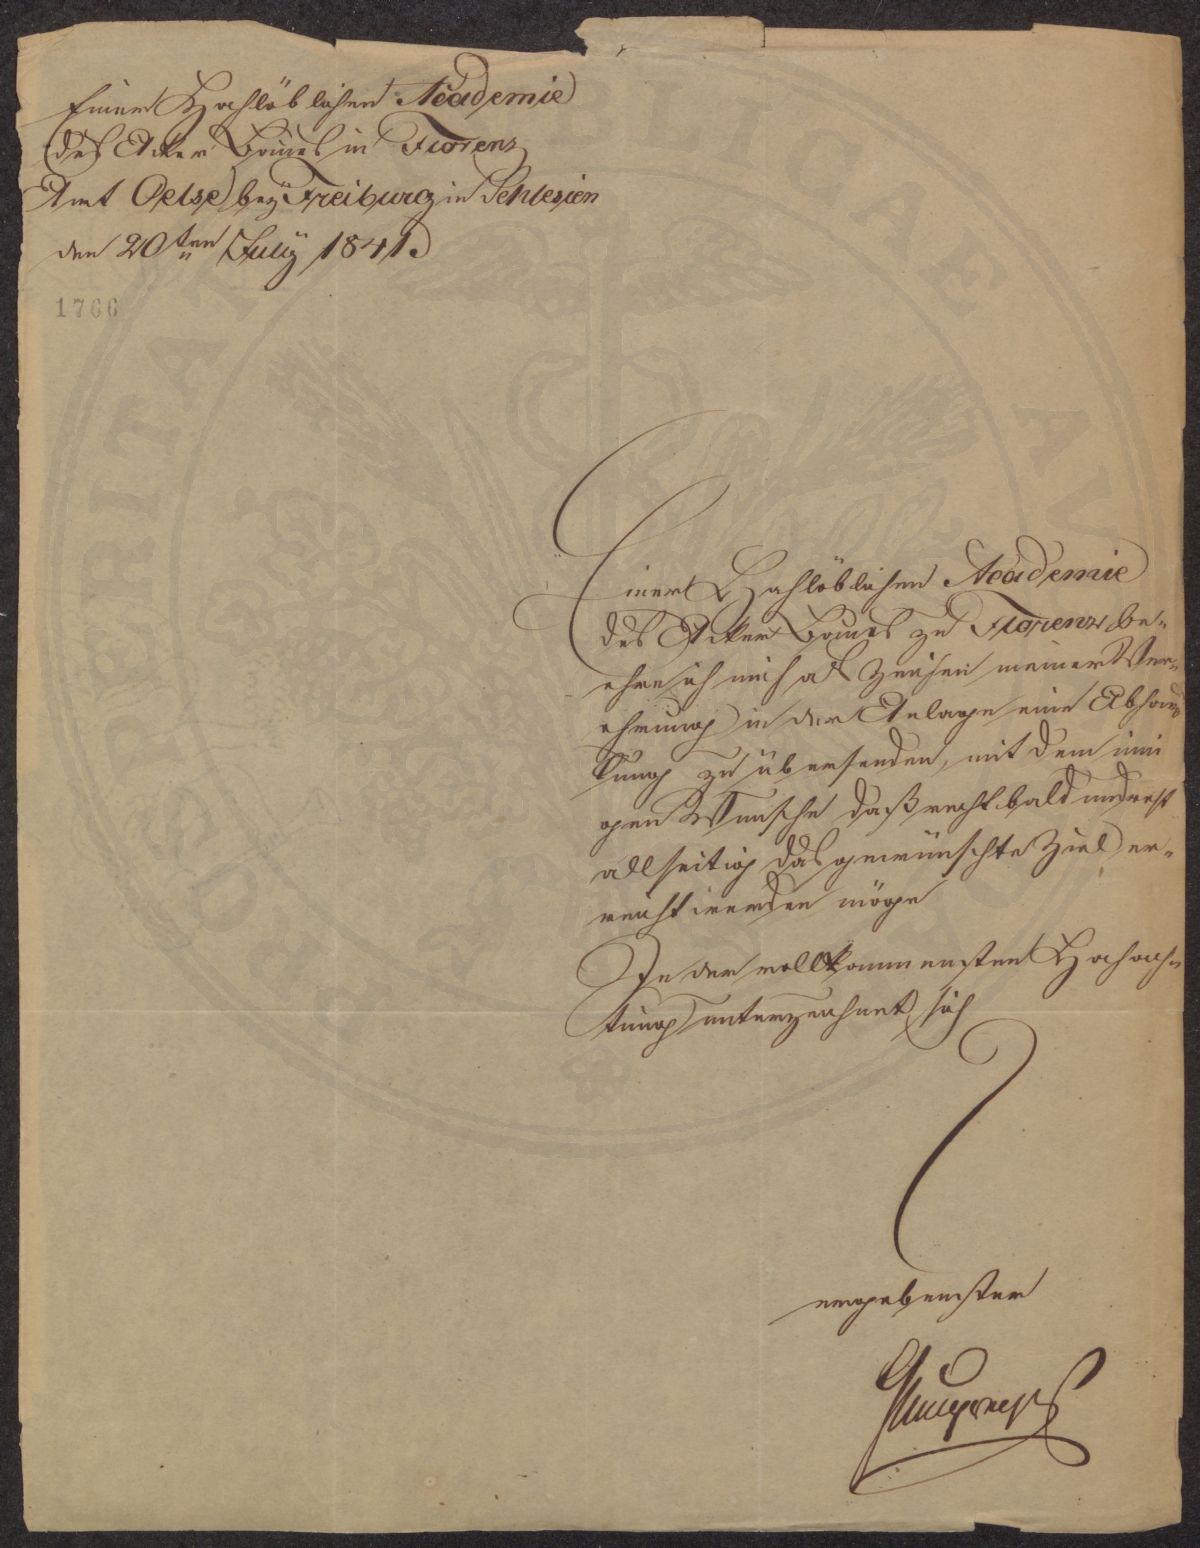 Einer Hochlöblichen Academie
des Acker Baues in Florenz
Amt Oelse bey Freiburg in Schlesien
den 20ten July 1841.
1766
Einer Hochlöblichen Academie
des Acker Baues zu Florenz be-
ehre ich mich als Zeichen meiner Ver-
ehrung in der Anlage eine Abhand
lung zu übersenden, mit dem inni
gen Wunsche daß recht bald und recht
allseitig das gewünschte Ziel er-
reicht werden möge
In der vollkommensten Hochach-
tung unterzeichnet sich
ergebenster